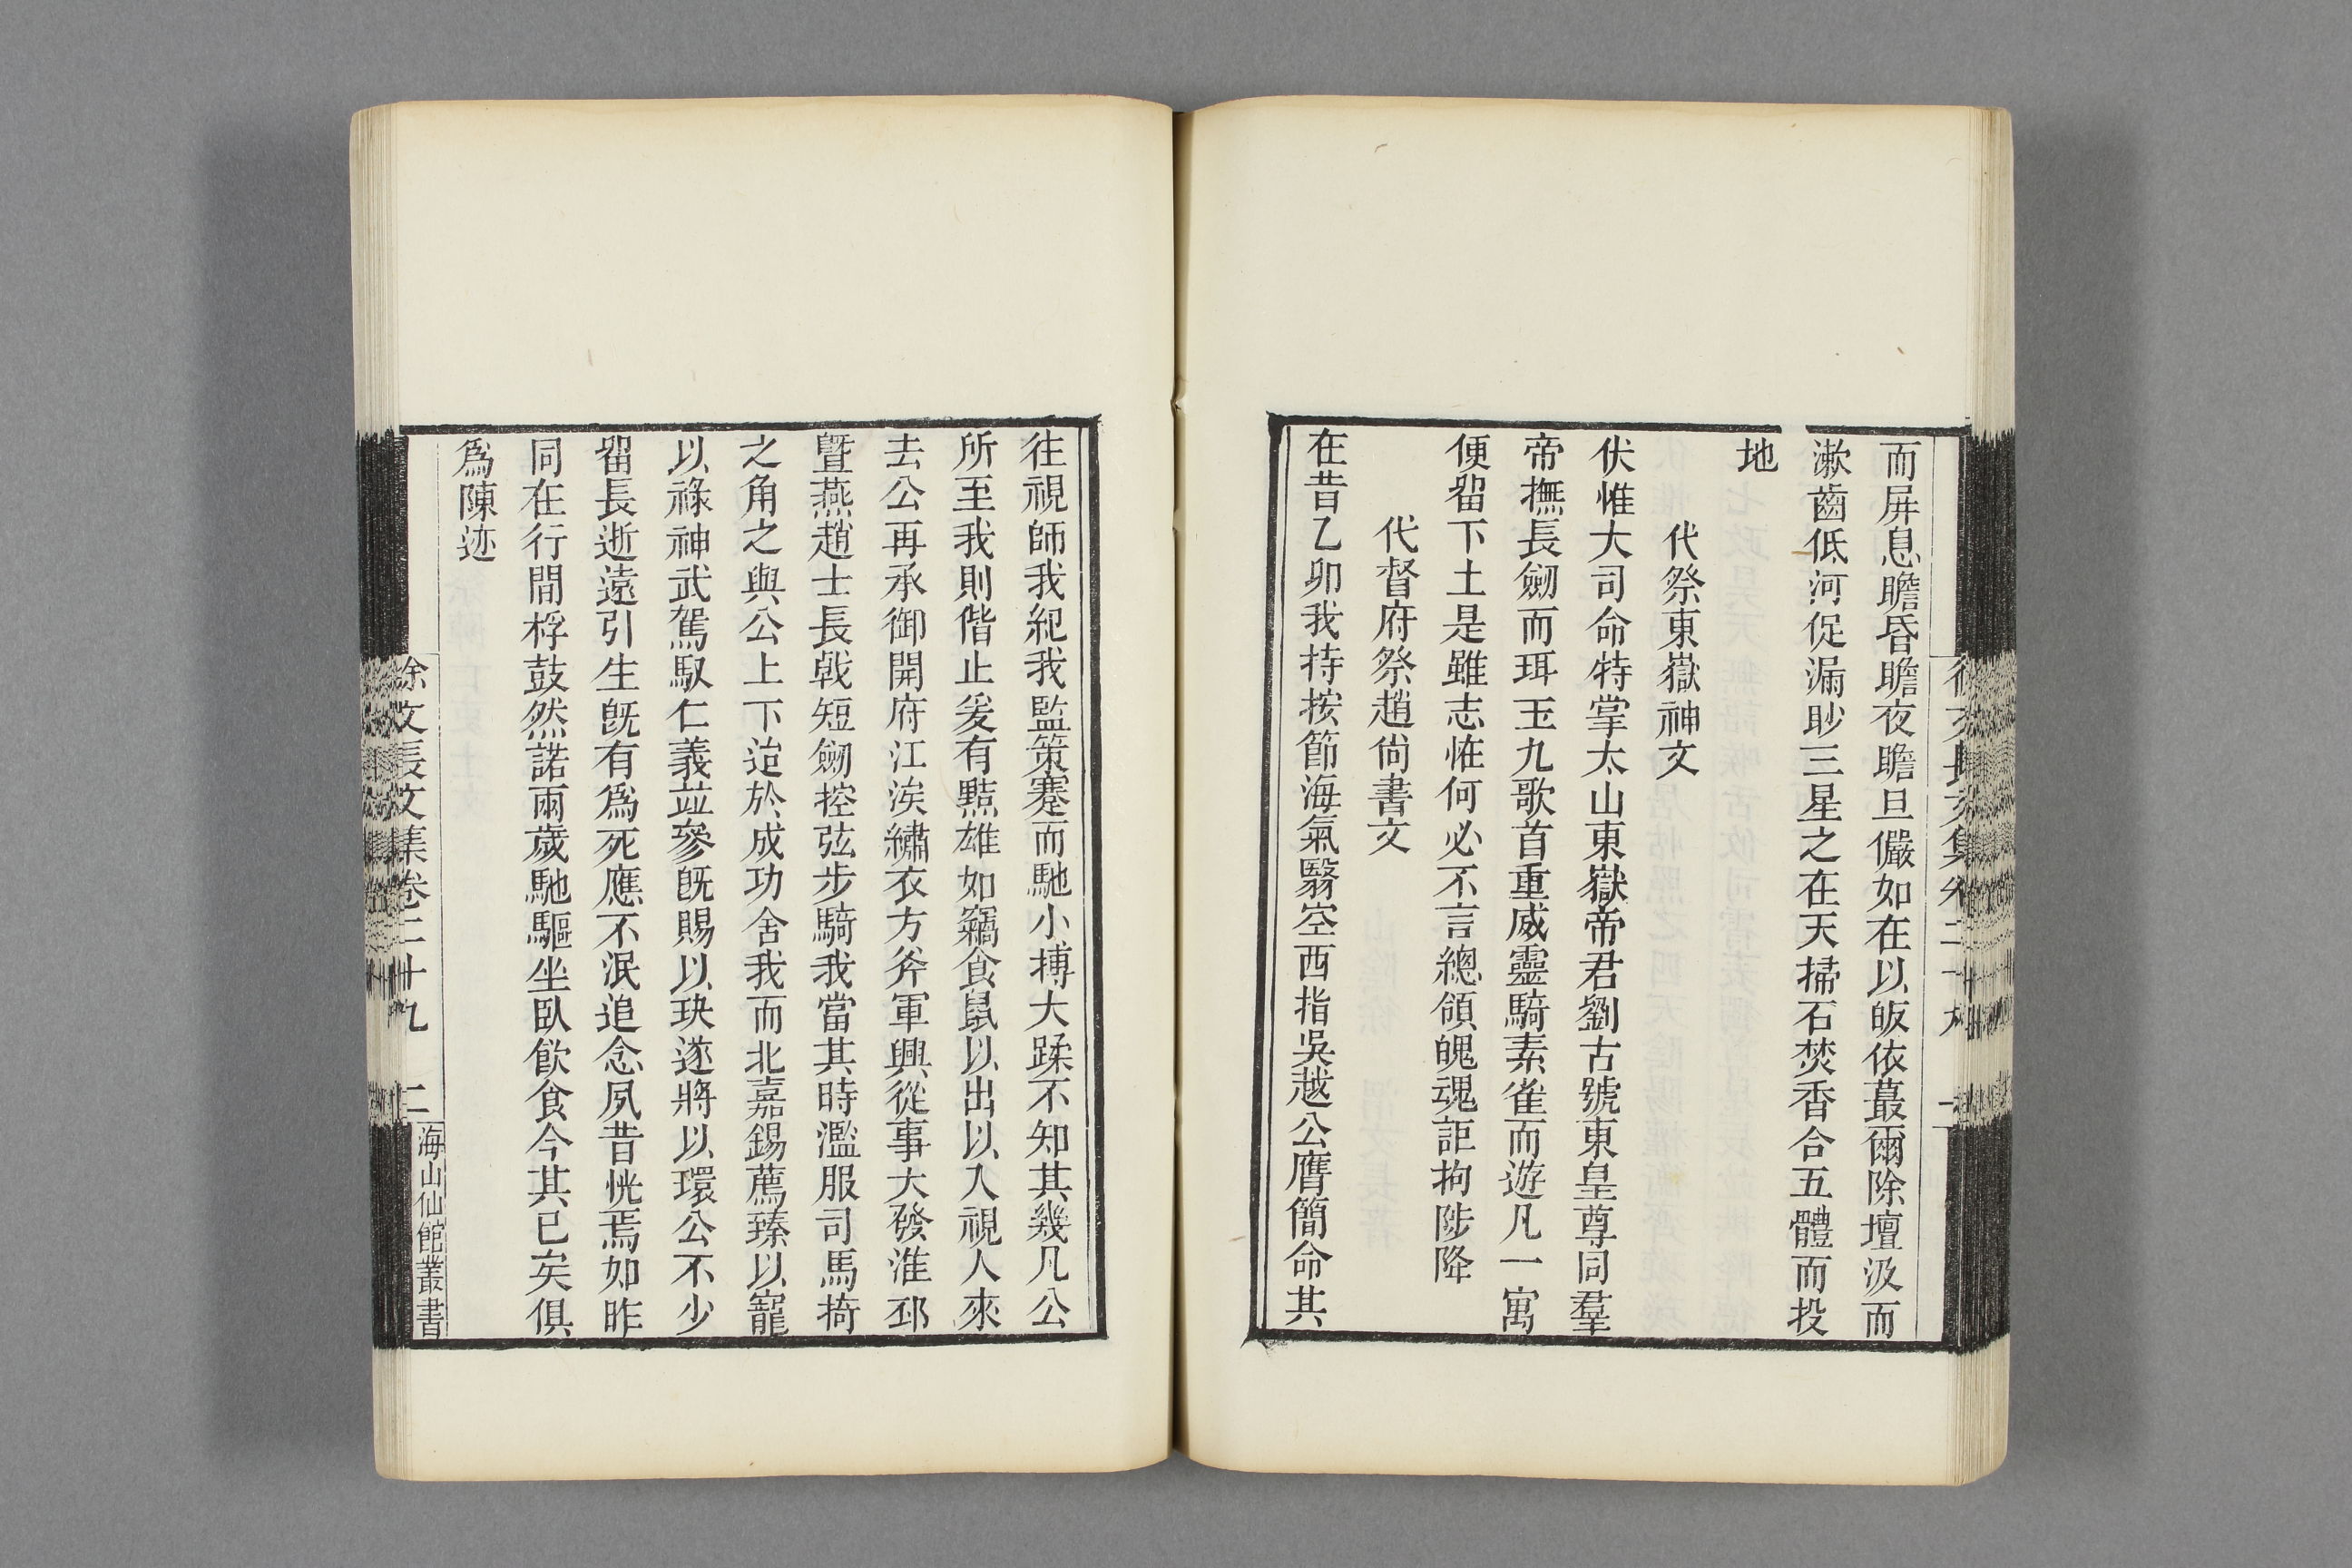 而屏息瞻昏瞻夜瞻旦儼如在以皈依蕞爾除壇汲而
漱齒低河促漏眇三星之在天掃石焚香合五體而投
地
代祭東嶽神文
伏惟大司命特掌太山東嶽帝君劉古號東皇尊同羣
帝撫長劒而珥玉九歌首重威靈騎素雀而遊凡一寓
便留下土是雖志怪何必不言總領魄魂詎拘陟降
代督府祭趙尙書文
在昔乙卯我持按節海氣翳空西指吳越公膺簡命其
往視師我紀我監策蹇而馳小搏大蹂不知其幾凡公
所至我則偕止爰有黠雄如竊食鼠以出以入視人來
去公再承御開府江涘繡衣方斧軍興從事大發淮邳
曁燕趙士長戟短劒控弦步騎我當其時濫服司馬掎
之角之與公上下迨於成功舍我而北嘉錫薦臻以寵
以祿神武駕馭仁義竝參旣賜以玦遂將以環公不少
留長逝遠引生旣有爲死應不泯追念夙昔恍焉如昨
同在行間桴鼓然諾兩歲馳驅坐臥飮食今其已矣俱
爲陳迹
徐文長文集卷二十九 二
海山仙館叢書